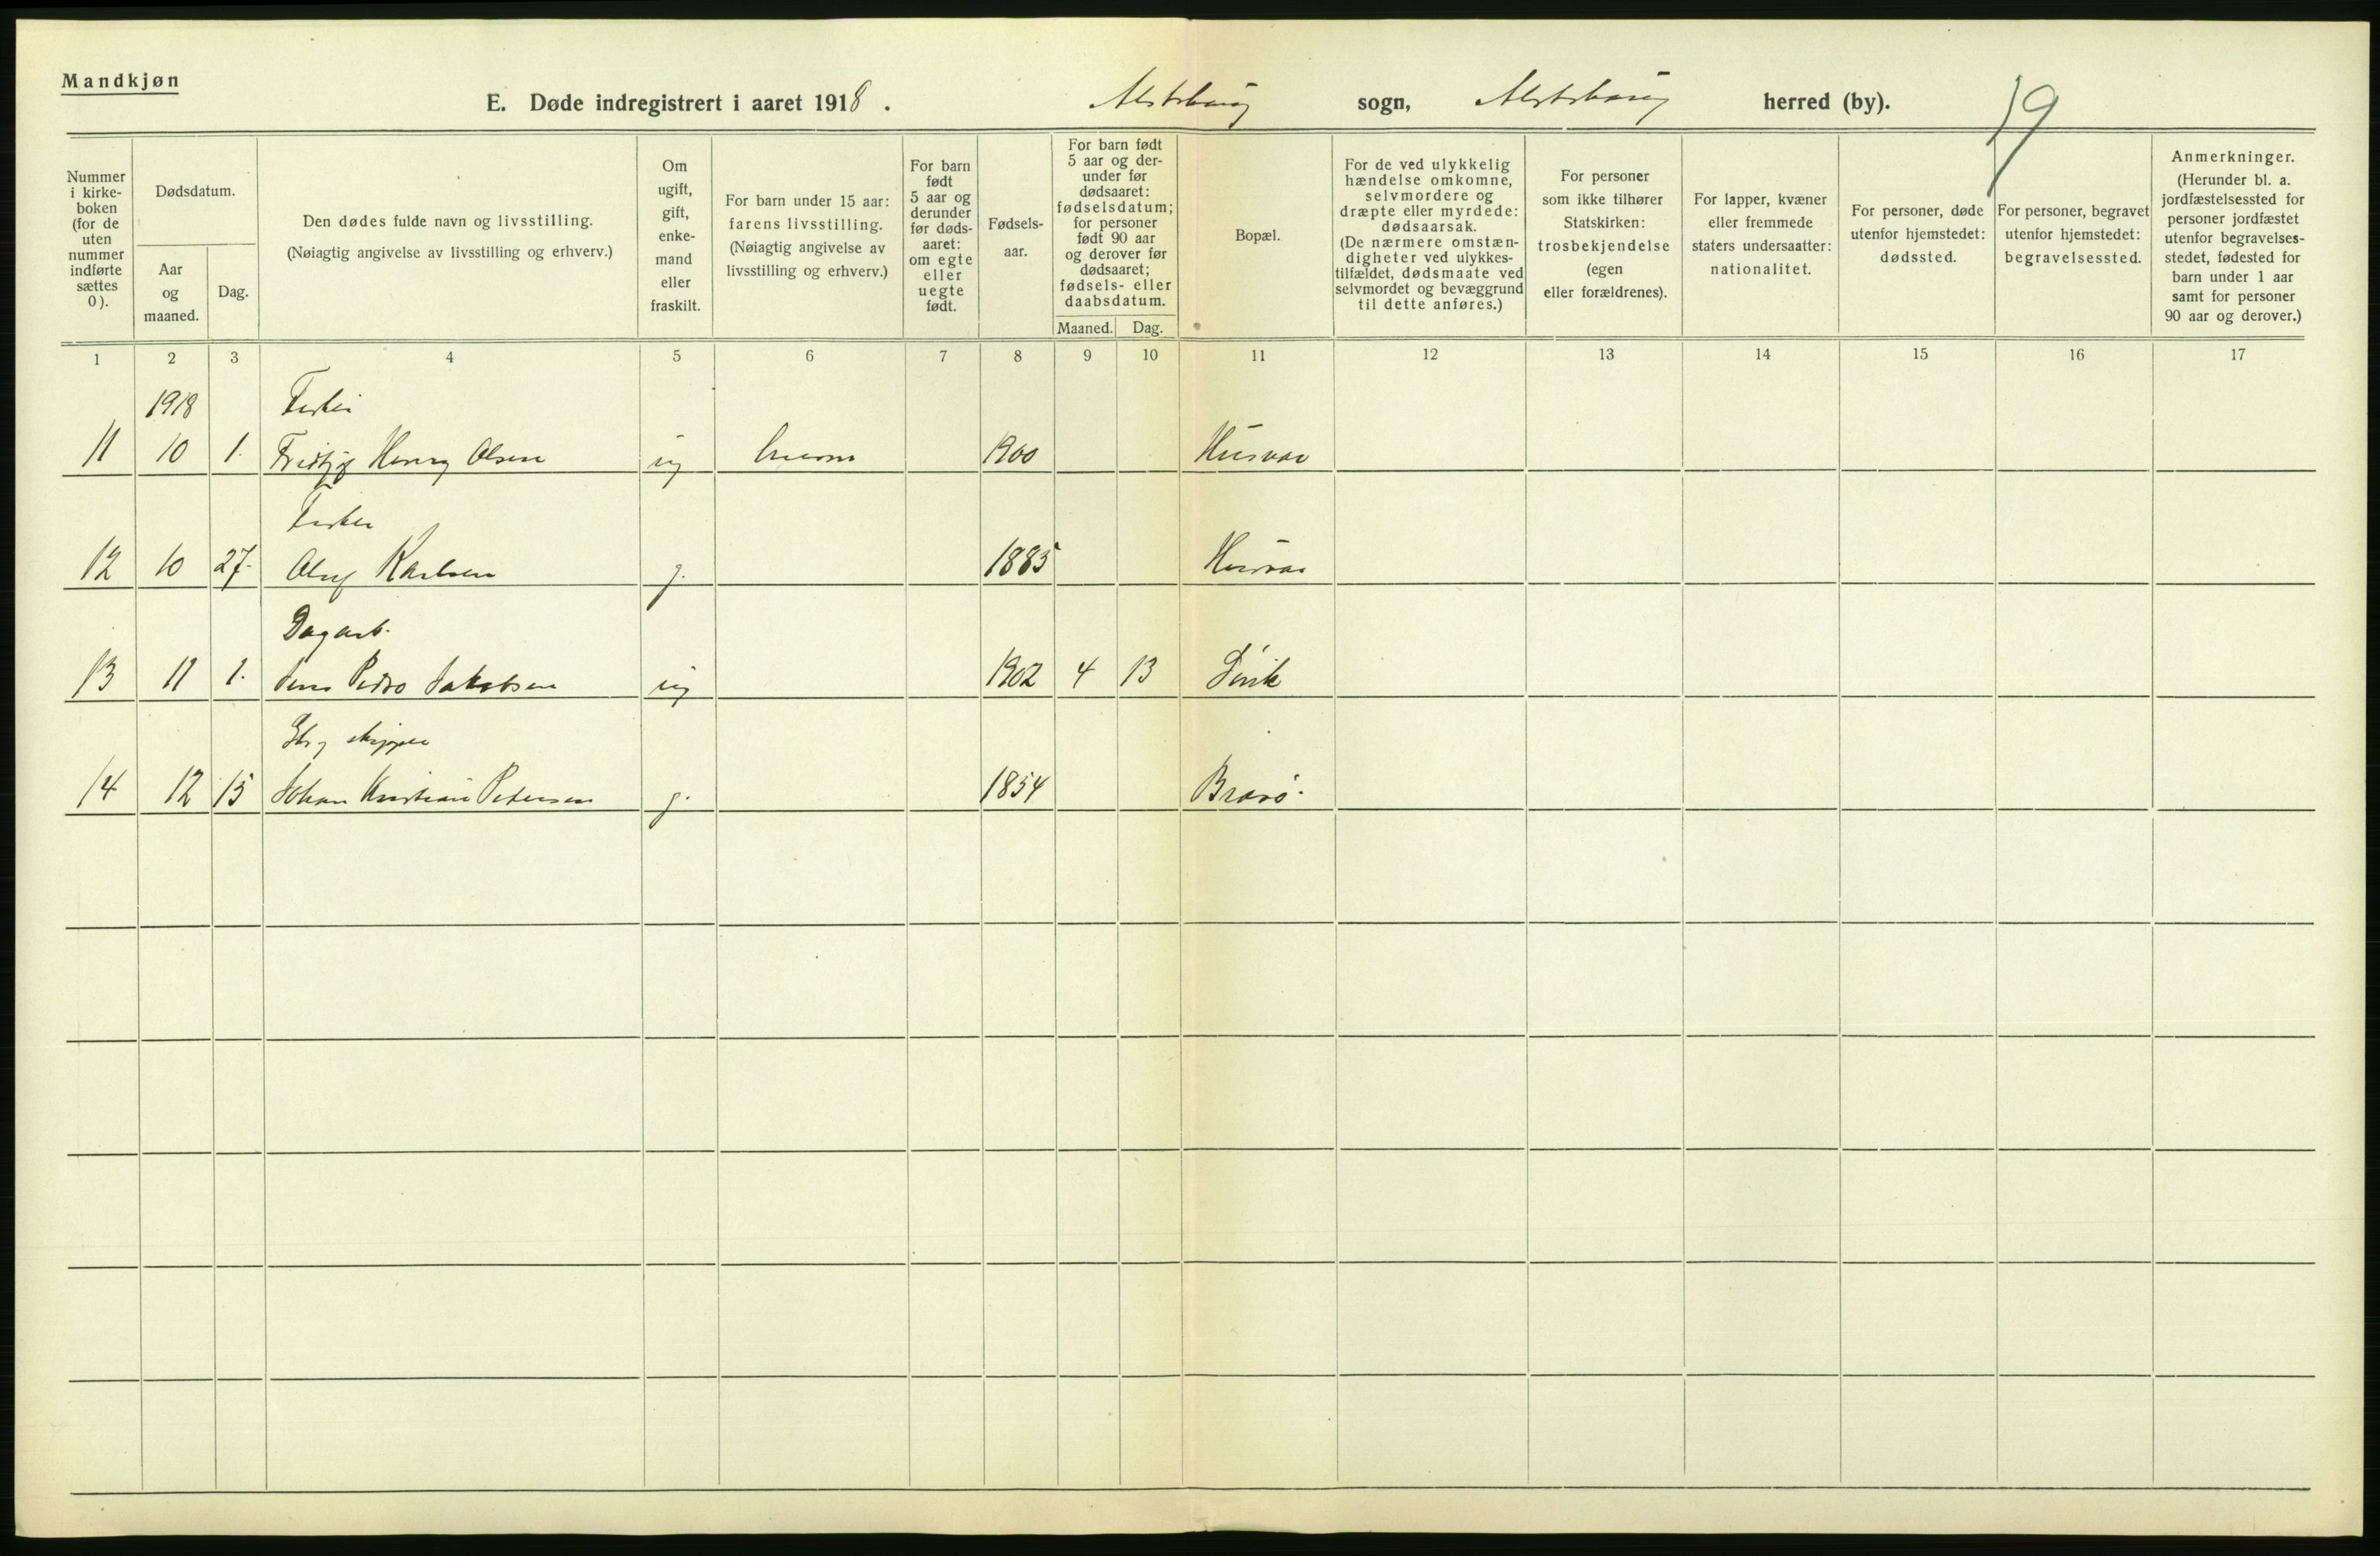 Mandkjøn
E. Døde indregistrert i aaret 1918. Alstahaug sogn, Alstahaug herred (by).
19
Nummer i kirke- boken (for de uten nummer indførte sættes 0).
Dødsdatum.
Aar og maaned.
Dag.
Den dødes fulde navn og livsstilling.
(Nøiagtig angivelse av livsstilling og erhverv.)
Om ugift, gift, enke- mand eller fraskilt.
For barn under 15 aar: farens livsstilling. (Nøiagtig angivelse av livsstilling og erhverv.)
For barn født 5 aar og derunder før døds- aaret: om egte eller uegte født.
Fødsels- aar.
For barn født 5 aar og der- under før dødsaaret: fødselsdatum; for personer født 90 aar og derover før dødsaaret; fødsels- eller daabsdatum.
Maaned. Dag.
Bopæl.
For de ved ulykkelig hændelse omkomne, selvmordere og dræpte eller myrdede: dødsaarsak. (De nærmere omstæn- digheter ved ulykkes- tilfældet, dødsmaate ved selvmordet og bevæggrund til dette anføres.)
For personer som ikke tilhører Statskirken: trosbekjendelse (egen eller forældrenes).
For lapper, kvæner eller fremmede staters undersaatter: nationalitet.
For personer, døde utenfor hjemstedet: dødssted.
For personer, begravet utenfor hjemstedet: begravelsessted.
Anmerkninger. (Herunder bl. a. jordfæstelsessted for personer jordfæstet utenfor begravelses- stedet, fødested for barn under 1 aar samt for personer 90 aar og derover.)
1 2 3 4 5 6 7 8 9 10 11 12 13 14 15 16 17
1918 Fisker
11 10 1. Fridtjof Henry Olsen ug 1900 Husvær
Fisker
12 10 27. Oluf Karlsen g. 1885 Husvær
Dagarb.
13 11 1. Jens Pedro Jakobsen ug 1902 4 13
skipper
14 12 15 Johan Kristian Petersen g. 1854